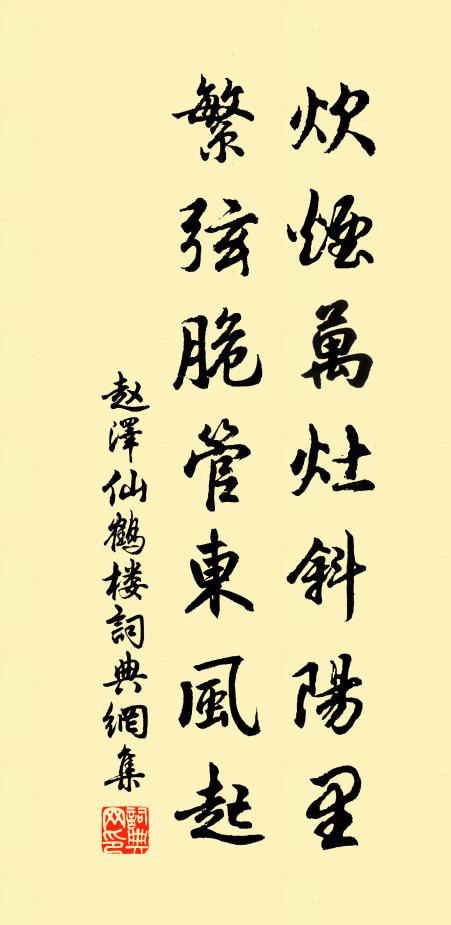 炊煙萬灶斜陽里
繁弦脆管東風起
赵澤仙鶴楼詞典網集
詞典网印